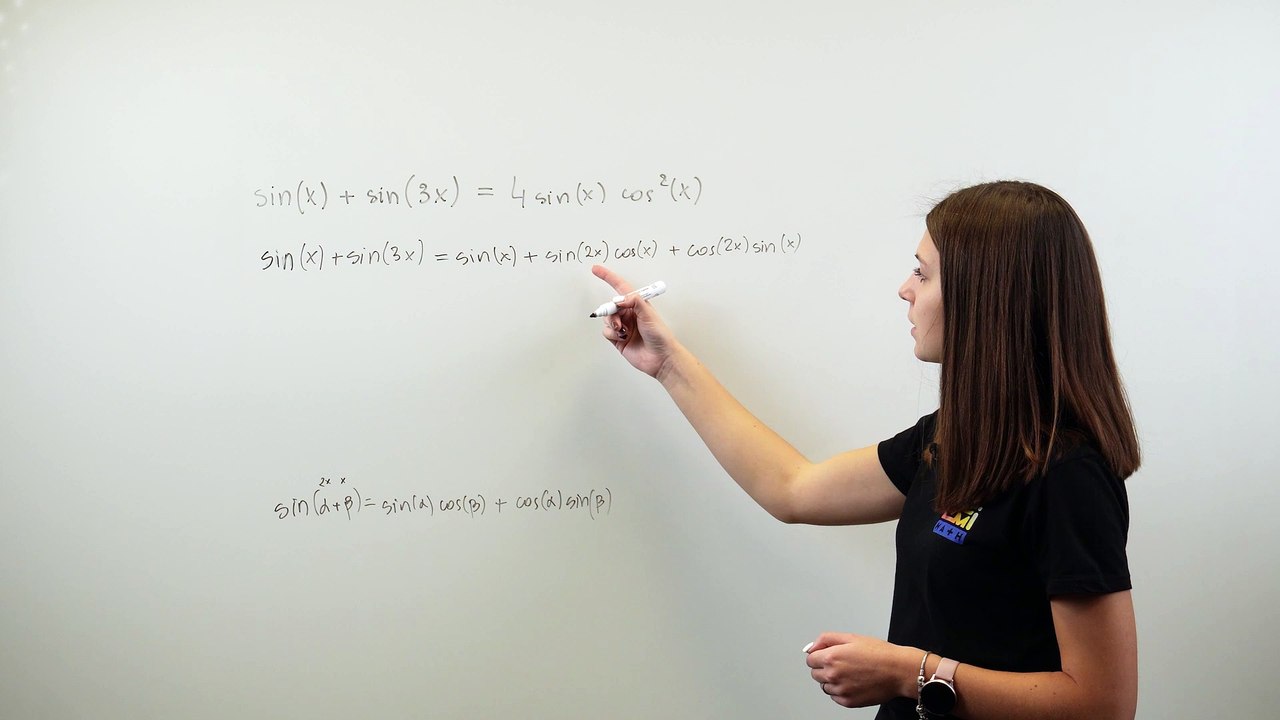 sin(x) + sin(3x) = 4 sin(x) cos²(x)
sin(x) + sin(3x) = sin(x) + sin(2x) cos(x) + cos(2x) sin(x)
2x x
sin(α+β) = sin(α) cos(β) + cos(α) sin(β)
MATH